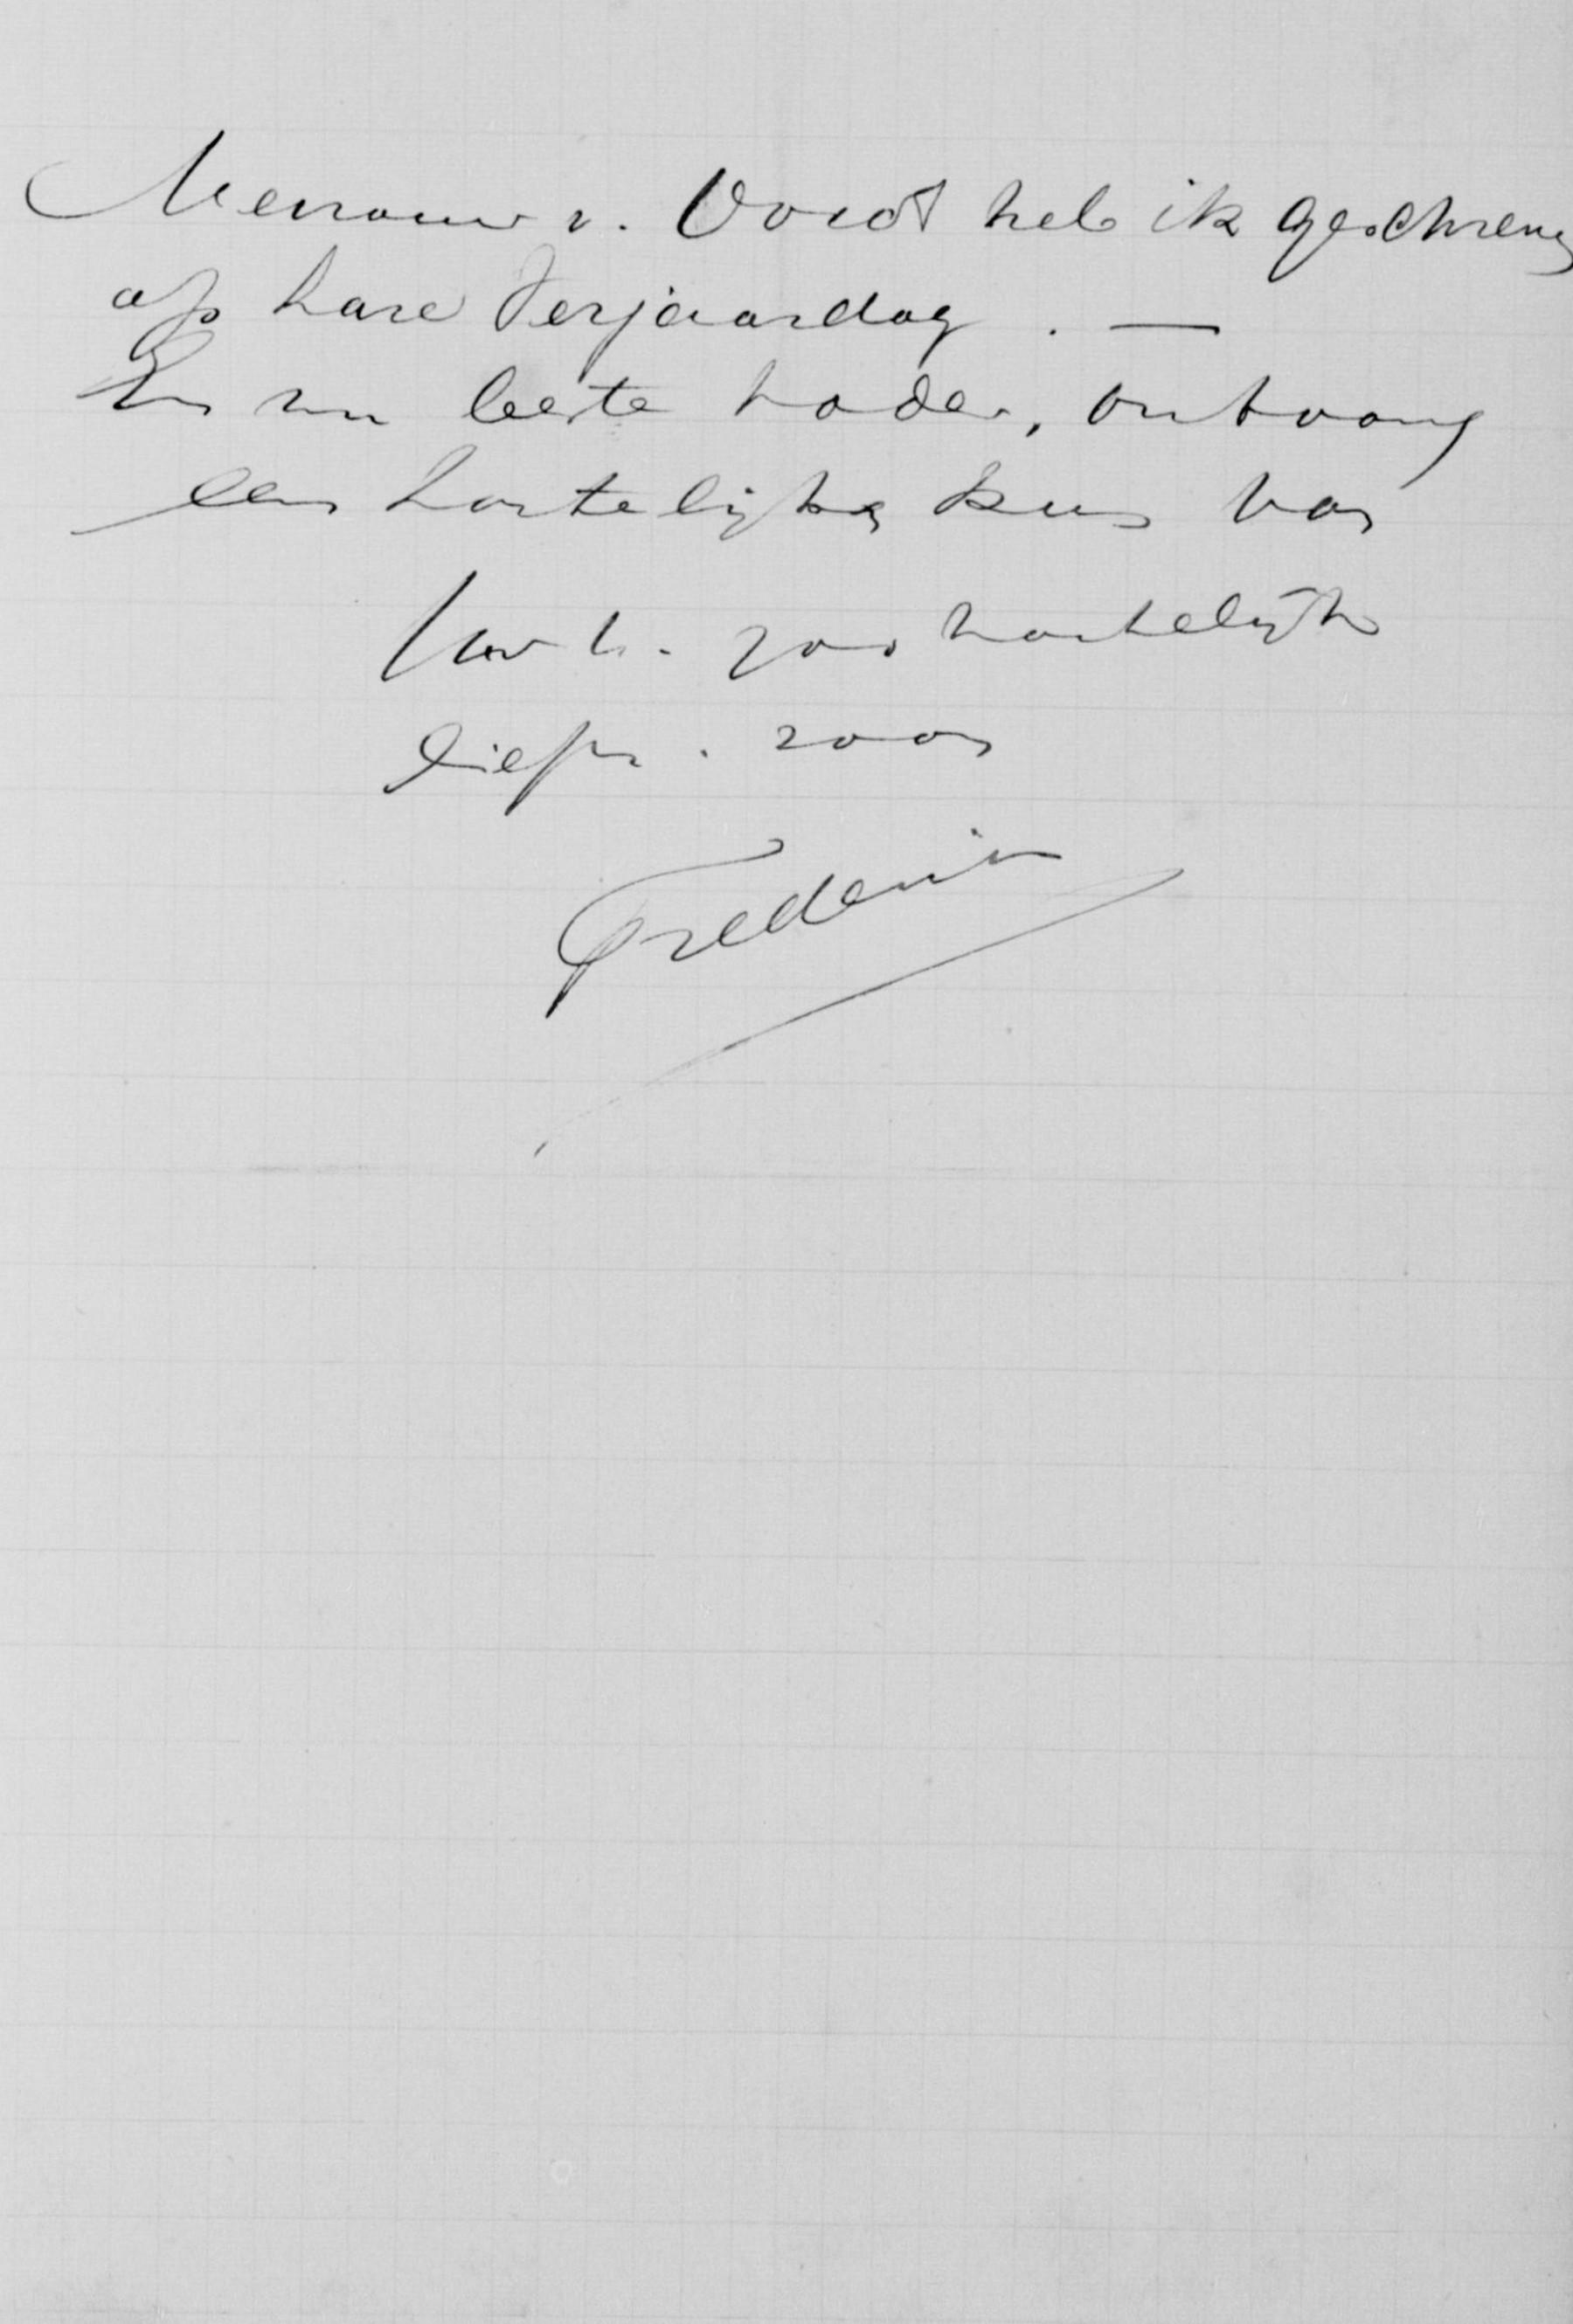 Mevrouw v. Voorst heb ik geschreven
op hare Verjaardag. —
En nu beste Vader, ontvang
een hartelijke kus van
Uw U. zoo hartelijk
liefh. zoon
Frederik